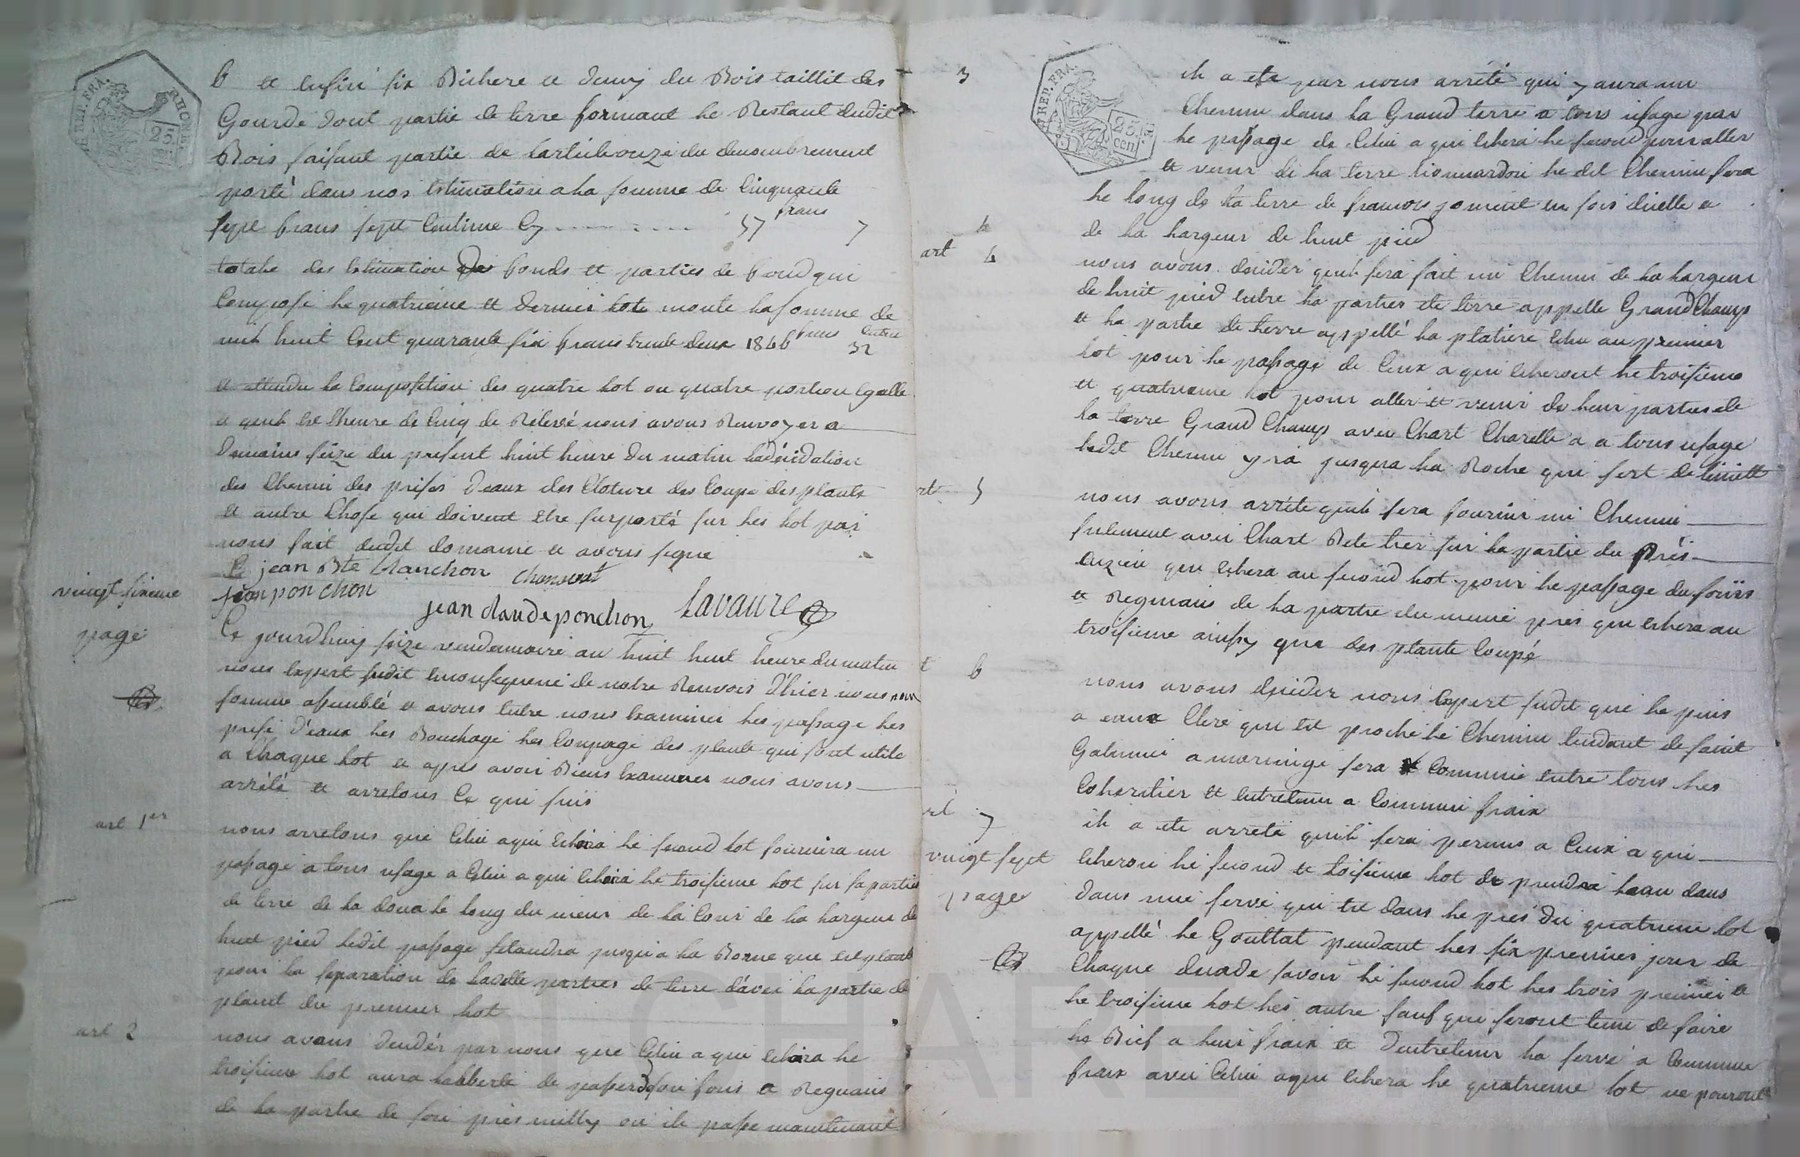 REP. FRA. RHONE 25 cen
6 et enfin six Bichere et demy du Bois taillit des
Gourde dont partie de terre formant le Restant dudit
Bois faisant partie de larticle onze du denombrement
porté dans nos Estimation a la somme de Cinquante
sept frans sept Centime Cy 57 frans 7
totale des Estimation des fonds et parties de fond qui
Compose le quatrieme et dernier lot monte la somme de
mil huit Cent quarante six frans trente deux 1846 frans 32 Centime
et attendu la Composition des quatre lot ou quatre portion Egalle
a quil Est Lheure de Cinq de Relevé nous avons Renvoyer a
demains seize du presant huit heure du matin Ladécidation
des Chemin des prises deaux des Cloture des Coupe des plants
et autre Chose qui doivent Etre suportés sur les lot par
nous fait dudit domaine et avons signe
jean Bte blanchon
jean ponchon
jean claude ponchon Lavaure
vingt sixieme
page
Ce jourdhuy seize vendemaire an huit huit heure du matin
nous Expert sudit En consequence de notre Renvois Dhier nous nous
somme assemblé et avons Entre nous Examiner les passage les
prise d'eaux les Bouchage les Coupage des plants qui sont utile
a Chaque lot et apres avoir Biens Examiner nous avons
arrêté et arretons Ce qui suis
art 1er
nous arretons que Celui a qui Echera le second lot fournira un
passage a tous usage a Celui a qui Echera le troisieme lot sur sa partie
de terre de la Doua le long du mur de la Cour de la largeur de
huit pied ledit passage setandra jusqua la Borne que est planté
pour la separation de laditte parties de terre davec la partie de
plant du premier lot
art 2
nous avons décidér par nous que Celui a qui Echera le
troisieme lot aura la liberté de passer son foins et Reguais
de la partie de son près milly ou il passe maintenant
REP. FRA. 25 cen
3
il a eté par nous arrété qui y aura un
Chemin dans la Grand terre a tous usage par
le passage de Celui a qui Echera le second pour aller
et venir de la terre Lionnardon le dit Chemin sera
le long de la terre de francois joment en sois dicelle a
de la largeur de huit pied
art 4
nous avons décidér quil sera fait un Chemin de la largeur
de huit pied Entre la parties de terre appellé Grand Champ
et la partie de terre appellé la platiere Echu au premier
lot pour le passage de Ceux a qui Echeront le troisieme
et quatrieme lot pour aller et venir de leur parties de
la terre Grand Champ avec Chart Charette a a tous usage
ledit Chemin yra jusqua la Roche qui sert de limitte
5
nous avons arrété quil sera fournir un Chemin
sulement avec Chart sur la partie du Près
que Echera au second lot pour le passage du foins
et Reguais de la partie du meme près que Echera au
troisieme ainsy que des plante Coupé
6
nous avons décider nous Expert sudit que le puis
a eaux Clere que est proche le Chemin tendant de saint
Galmier a maringe sera Commun entre tous les
Coheritier et Entretenu a Commun fraix
7
il a eté arreté quil sera permis a Ceux a qui
Echeront le second et troisieme lot de prendre leau dans
dans une serve qui est dans le près du quatrieme lot
appellé le Gouttat pendant les six premiers jour de
Chaque decade savoir le second lot les trois premier et
le troisieme lot les autre sauf que seront tenu de faire
le Bief a leur fraix et dentretenir la serve a Commun
fraix avec Celui a qui Echera le quatrieme lot ne pouront
vingt sept
page